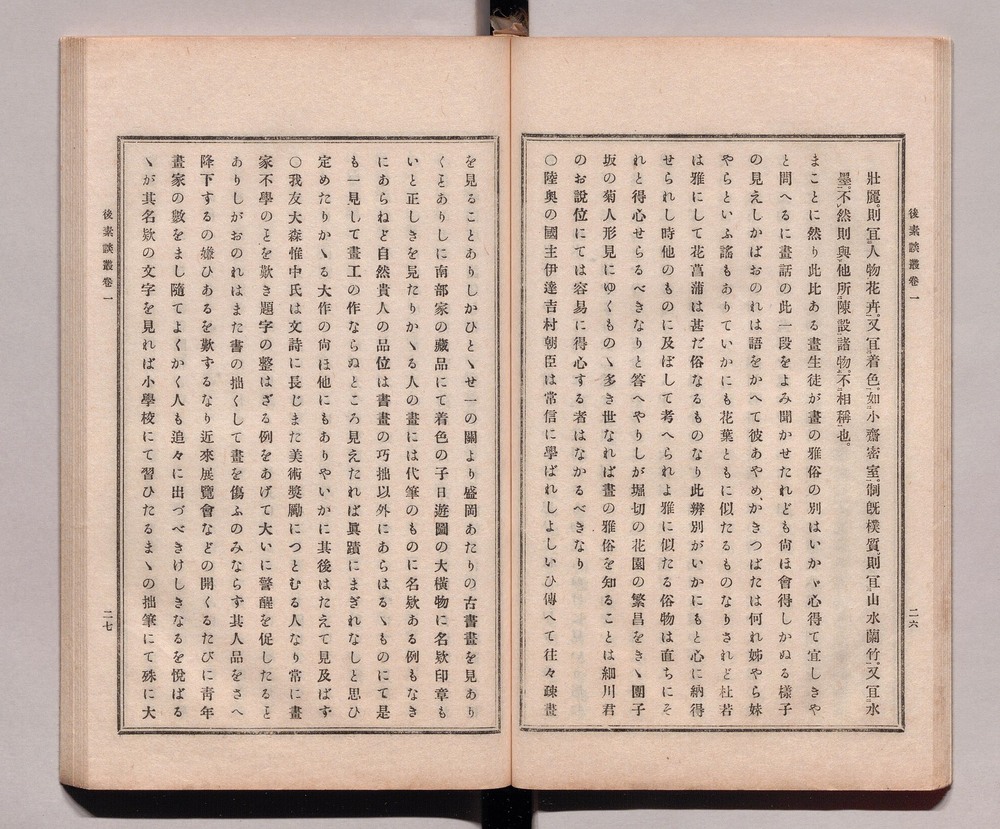 後素談叢卷一
二六
壯麗。則宜人物花卉。又宜着色。如小齋密室。制旣樸質。則宜山水蘭竹。又宜水
墨。不然則與他所陳設諸物。不相稱也。
まことに然り此比ある畫生徒が畫の雅俗の別はいかゞ心得て宜しきや
と問へるに畫話の此一段をよみ聞かせたれども尙ほ會得しかぬる樣子
の見えしかばおのれは語をかへて彼あやめ、かきつばたは何れ姊やら妹
やらといふ謠もありていかにも花葉ともに似たるものなりされど杜若
は雅にして花菖蒲は甚だ俗なるものなり此辨別がいかにもと心に納得
せられし時他のものに及ぼして考へられよ雅に似たる俗物は直ちにそ
れと得心せらるべきなりと答へやりしが堀切の花園の繁昌をきゝ團子
坂の菊人形見にゆくものゝ多き世なれば畫の雅俗を知ることは細川君
のお說位にては容易に得心する者はなかるべきなり
○陸奧の國主伊達吉村朝臣は常信に學ばれしよしいひ傳へて往々疎畫
を見ることありしかひとゝせ一の關より盛岡あたりの古書畫を見あり
くとありしに南部家の藏品にて着色の子日遊圖の大橫物に名欵印章も
いと正しきを見たりかゝる人の畫には代筆のものに名欵ある例もなき
にあらねど自然貴人の品位は書畫の巧拙以外にあらはるゝものにて是
も一見して畫工の作ならぬところ見えたれば眞蹟にまぎれなしと思ひ
定めたりかゝる大作の尙ほ他にもありやいかに其後はたえて見及ばす
○我友大森惟中氏は文詩に長じまた美術奬勵につとむる人なり常に畫
家不學のとを歎き題字の整はざる例をあげて大いに警醒を促したると
ありしがおのれはまた書の拙くして畫を傷ふのみならす其人品をさへ
降下するの嫌ひあるを歎するなり近來展覽會などの開くるたびに靑年
畫家の數をまし隨てよくかく人も追々に出づべきけしきなるを悅ばる
ゝが其名欵の文字を見れば小學校にて習ひたるまゝの拙筆にて殊に大
後素談叢卷一
二七